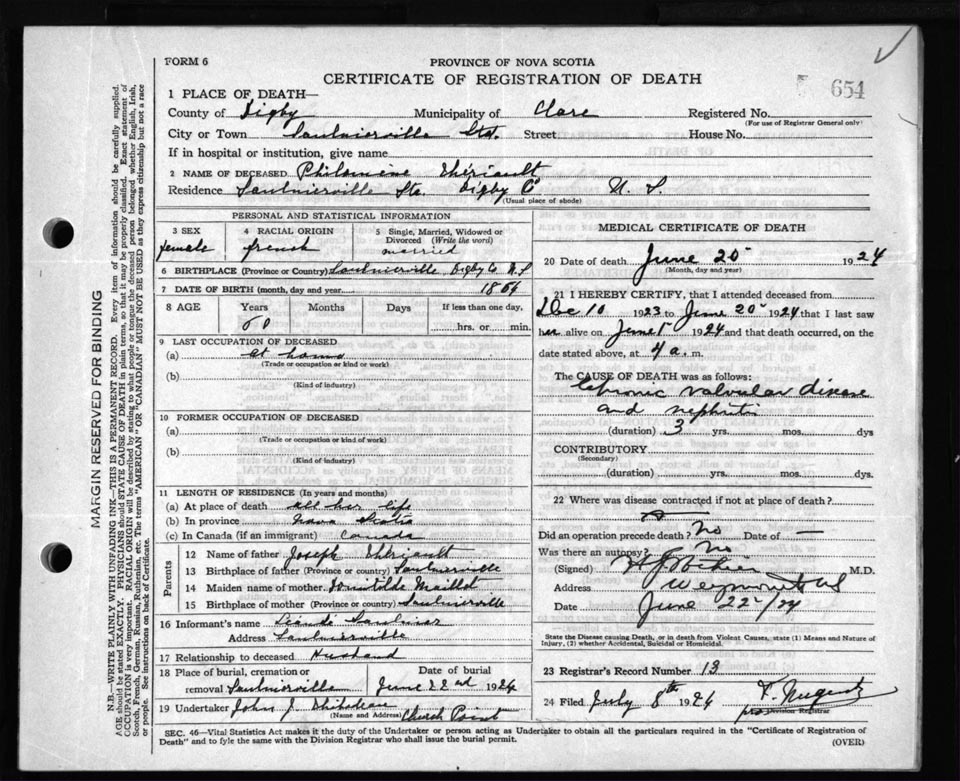 FORM 6
PROVINCE OF NOVA SCOTIA
CERTIFICATE OF REGISTRATION OF DEATH
654
1 PLACE OF DEATH—
County of Digby Municipality of Clare Registered No.
(For use of Registrar General only)
City or Town Saulnierville Sta. Street House No.
If in hospital or institution, give name
2 NAME OF DECEASED Philomène Thériault
Residence Saulnierville Sta. Digby Co N. S.
(Usual place of abode)
PERSONAL AND STATISTICAL INFORMATION
3 SEX 4 RACIAL ORIGIN 5 Single, Married, Widowed or Divorced (Write the word)
female french married
6 BIRTHPLACE (Province or Country) Saulnierville Digby Co N.S
7 DATE OF BIRTH (month, day and year)
8 AGE Years Months Days If less than one day,
hrs. or min.
9 LAST OCCUPATION OF DECEASED
(a) at home
(Trade or occupation or kind or work)
(b)
(Kind of industry)
10 FORMER OCCUPATION OF DECEASED
(a)
(Trade or occupation or kind of work)
(b)
(Kind of industry)
11 LENGTH OF RESIDENCE (In years and months)
(a) At place of death all her life
(b) In province Nova Scotia
(c) In Canada (if an immigrant) Canada
Parents
12 Name of father Joseph Thériault
13 Birthplace of father (Province or country) Saulnierville
14 Maiden name of mother Maillet
15 Birthplace of mother (Province or country) Saulnierville
16 Informant's name Saulnier
Address Saulnierville
17 Relationship to deceased Husband
18 Place of burial, cremation or removal Saulnierville
Date of burial June 22nd 1924
19 Undertaker John J. Church Point
(Name and Address)
MEDICAL CERTIFICATE OF DEATH
20 Date of death June 20 1924
(Month, day and year)
21 I HEREBY CERTIFY, that I attended deceased from
Dec 10 1923 to June 20 1924 that I last saw
her alive on June 1924 and that death occurred, on the
date stated above, at 4 a. m.
The CAUSE OF DEATH was as follows:
Chronic valvular disease
and nephritis
(duration) 3 yrs. mos. dys
CONTRIBUTORY
(Secondary)
(duration) yrs. mos. dys.
22 Where was disease contracted if not at place of death?
Did an operation precede death? No Date of —
Was there an autopsy? No
(Signed) M.D.
Address Weymouth NS
Date June 22/24
State the Disease causing Death, or in death from Violent Causes, state (1) Means and Nature of
Injury, (2) whether Accidental, Suicidal or Homicidal.
23 Registrar's Record Number 13
24 Filed July 8th 1924 Nugent
Division Registrar
SEC. 46—Vital Statistics Act makes it the duty of the Undertaker or person acting as Undertaker to obtain all the particulars required in the "Certificate of Registration of
Death" and to fyle the same with the Division Registrar who shall issue the burial permit.
(OVER)
MARGIN RESERVED FOR BINDING
N.B.—WRITE PLAINLY WITH UNFADING INK—THIS IS A PERMANENT RECORD. Every item of information should be carefully supplied.
AGE should be stated EXACTLY. PHYSICIANS should STATE CAUSE OF DEATH in plain terms, so that it may be properly classified. Exact statement of
OCCUPATION is very important. RACIAL ORIGIN will be described by stating to what people or tongue the deceased person belonged whether English, Irish,
Scotch, French, German, Russian, Ruthenian, etc. The terms "AMERICAN" OR "CANADIAN" MUST NOT BE USED as they express citizenship but not a race
or people. See instructions on back of Certificate.